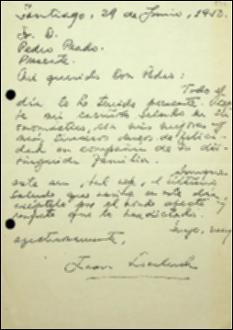 Santiago, 29 de Junio, 1952.
Sr. D.
Pedro Prado.
Presente.
Mi querido Don Pedro:
Todo el
día le he tenido presente.
mi cariñoso saludo en su
onomástico, con mis mejores y
más sinceros votos de felici-
dad en compañía de su dis-
tinguida familia.
Aunque
este sea, tal vez, el último
saludo que reciba en este día,
acéptelo por el hondo afecto y
respeto que lo han dictado.
Suyo, muy
afectuosamente,
Juan